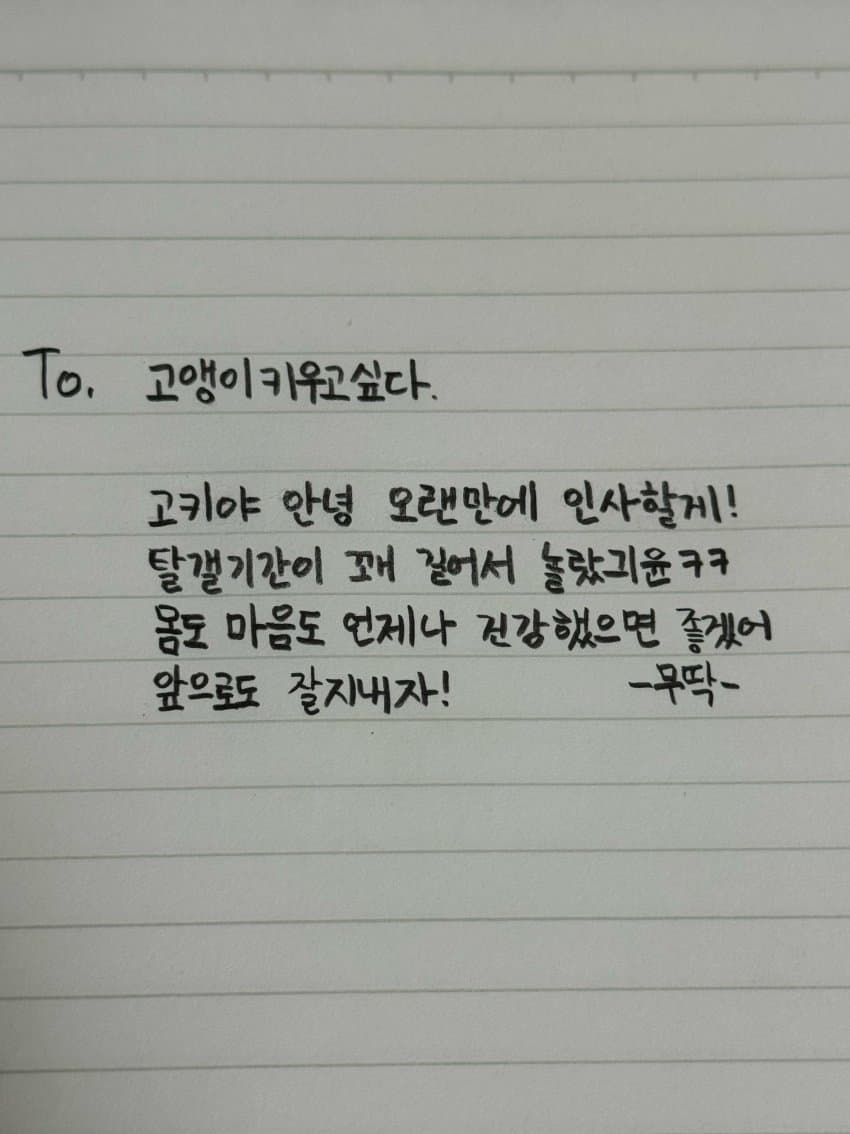 To. 고앵이키우고싶다.
고키야 안녕 오랜만에 인사할게!
탈갤기간이 꽤 길어서 놀랐긔윤ㅋㅋ
몸도 마음도 언제나 건강했으면 좋겠어
앞으로도 잘지내자! -무딱-